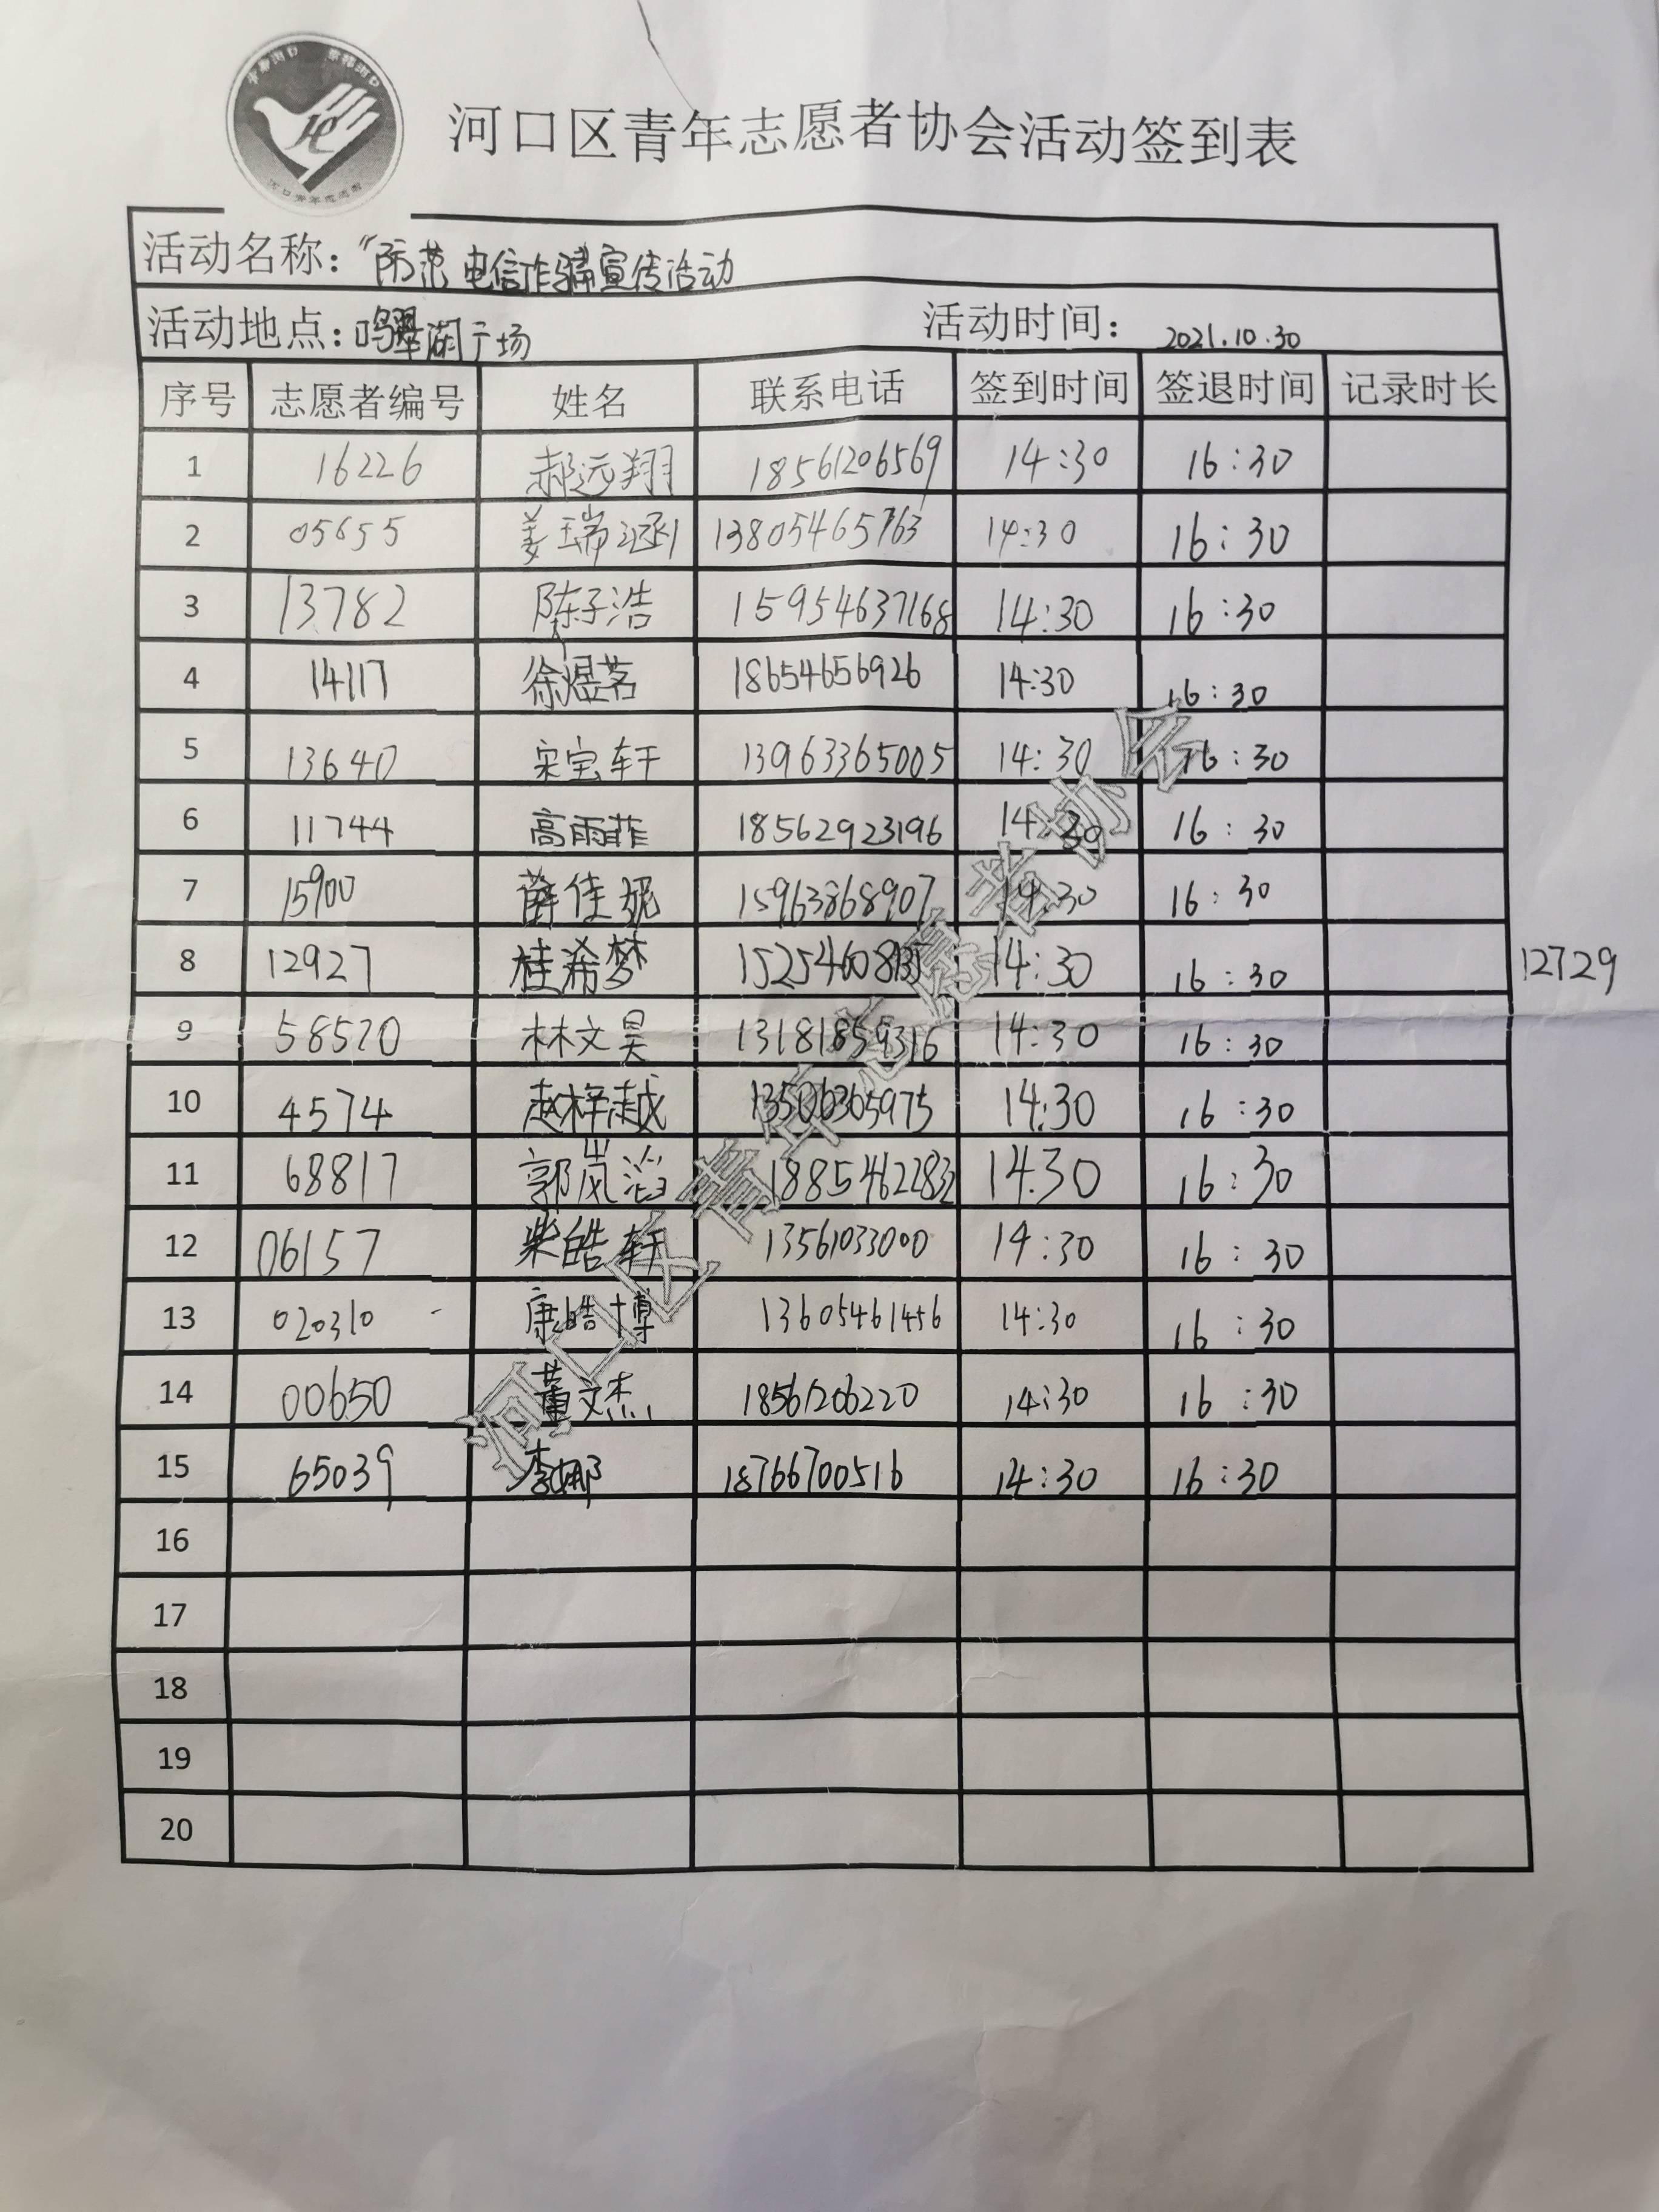 河口青年志愿者
河口区青年志愿者协会活动签到表
活动名称：“防范电信诈骗宣传活动
活动地点：鸣翠湖广场 活动时间： 2021.10.30
序号 志愿者编号 姓名 联系电话 签到时间 签退时间 记录时长
1 16226 郝远翔 18561206569 14:30 16:30
2 05655 姜瑞涵 13805465763 14:30 16:30
3 13782 陈子浩 15954637168 14:30 16:30
4 14117 徐煜茗 18654656926 14:30 16:30
5 13640 宋宝轩 13963365005 14:30 16:30
6 11744 高雨菲 18562923196 14:30 16:30
7 15900 薛佳妮 15963868907 14:30 16:30
8 12927 桂希梦 14:30 16:30 12729
9 58520 林文昊 13181859316 14:30 16:30
10 4574 赵梓越 13506365975 14:30 16:30
11 68817 郭岚滔 18854622832 14:30 16:30
12 06157 柴皓轩 13561033000 14:30 16:30
13 020310 康皓博 13605461456 14:30 16:30
14 00650 董文杰 18561206220 14:30 16:30
15 65039 李娜 18766700516 14:30 16:30
16
17
18
19
20
河口区青年志愿者协会